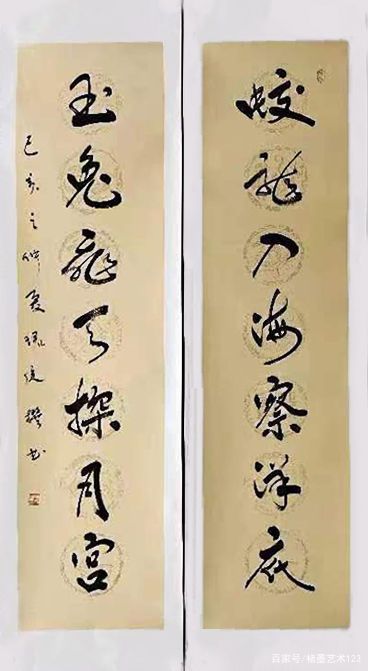 蛟龍入海察洋底
玉兔飛天探月宫
己亥之仲夏
撰书
百家号/楮墨艺术123